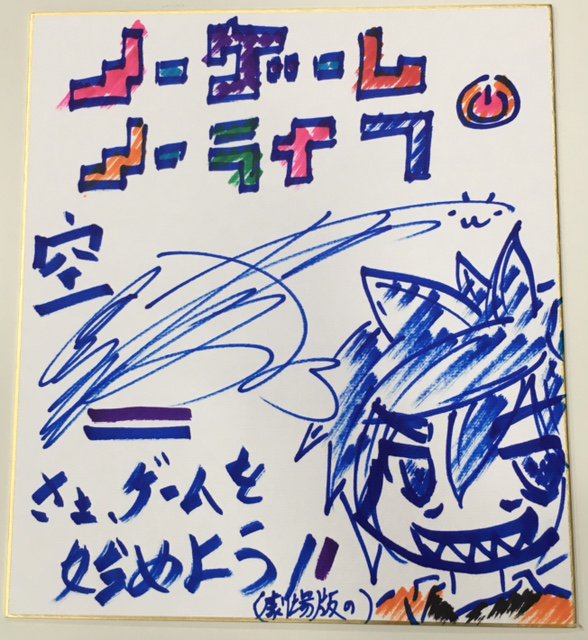 ノーゲーム
ノーライフ
空
さぁ、ゲームを
始めよう!!
(劇場版の)